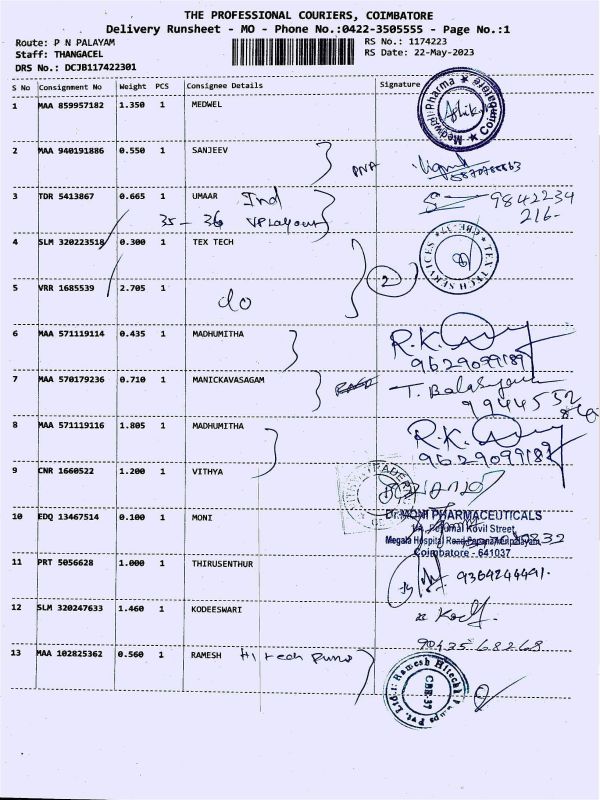 THE PROFESSIONAL COURIERS, COIMBATORE
Delivery Runsheet - MO - Phone No.:0422-3505555 - Page No.:1
Route: P N PALAYAM
RS No.: 1174223
Staff: THANGACEL
RS Date: 22-May-2023
DRS No.: DCJB117422301
S No Consignment No Weight PCS Consignee Details Signature
1 MAA 859957182 1.350 1 MEDWEL
2 MAA 940191886 0.550 1 SANJEEV
3 TDR 5413867 0.665 1 UMAAR Ind 9842234
35 - 36 VP Layout 216-
4 SLM 320223518 0.300 1 TEX TECH
TEX TECH SERVICES
2
5 VRR 1685539 2.705 1
do
6 MAA 571119114 0.435 1 MADHUMITHA R.K.
9629099189
7 MAA 570179236 0.710 1 MANICKAVASAGAM
8 MAA 571119116 1.805 1 MADHUMITHA R.K.
9629099189
9 CNR 1660522 1.200 1 VITHYA
10 EDQ 13467514 0.100 1 MONI Dr.MONI PHARMACEUTICALS
Kovil Street,
Megala Hospital Road,
Coimbatore - 641037
11 PRT 5056628 1.000 1 THIRUSENTHUR
9364244491.
12 SLM 320247633 1.460 1 KODEESWARI
9043568268
13 MAA 102825362 0.560 1 RAMESH Hitech Pump
CBE-37